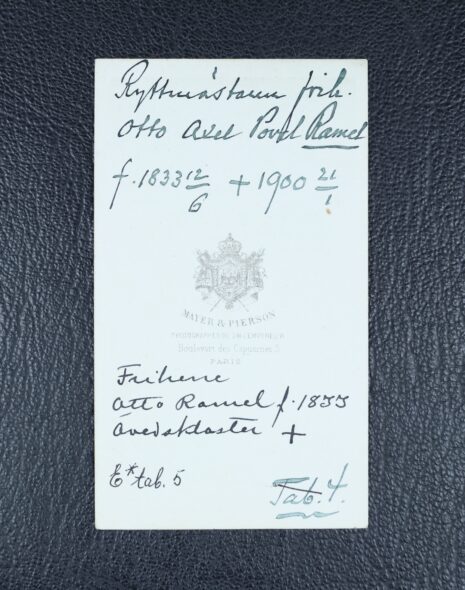 Ryttmästaren frih.
Otto Axel Povel Ramel
f. 1833 12/6 + 1900 21/1
MAYER & PIERSON
PHOTOGRAPHES DE S.M. L'EMPEREUR
Boulevart des Capucines, 3
PARIS
Friherre
Otto Ramel f. 1833
Övedskloster +
E* tab. 5
Tab. 4.